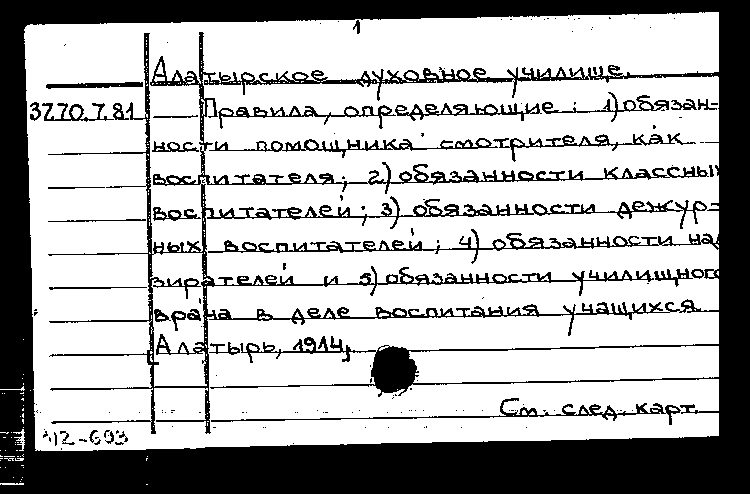 1
Алатырское духовное училище.
37.70.7.81 Правила, определяющие: 1) обязан-
ности помощника смотрителя, как
воспитателя; 2) обязанности классных
воспитателей; 3) обязанности дежур-
ных воспитателей; 4) обязанности на
зирателей и 5) обязанности училищного
врача в деле воспитания учащихся
[Алатырь, 1914]
См. след. карт.
312-693